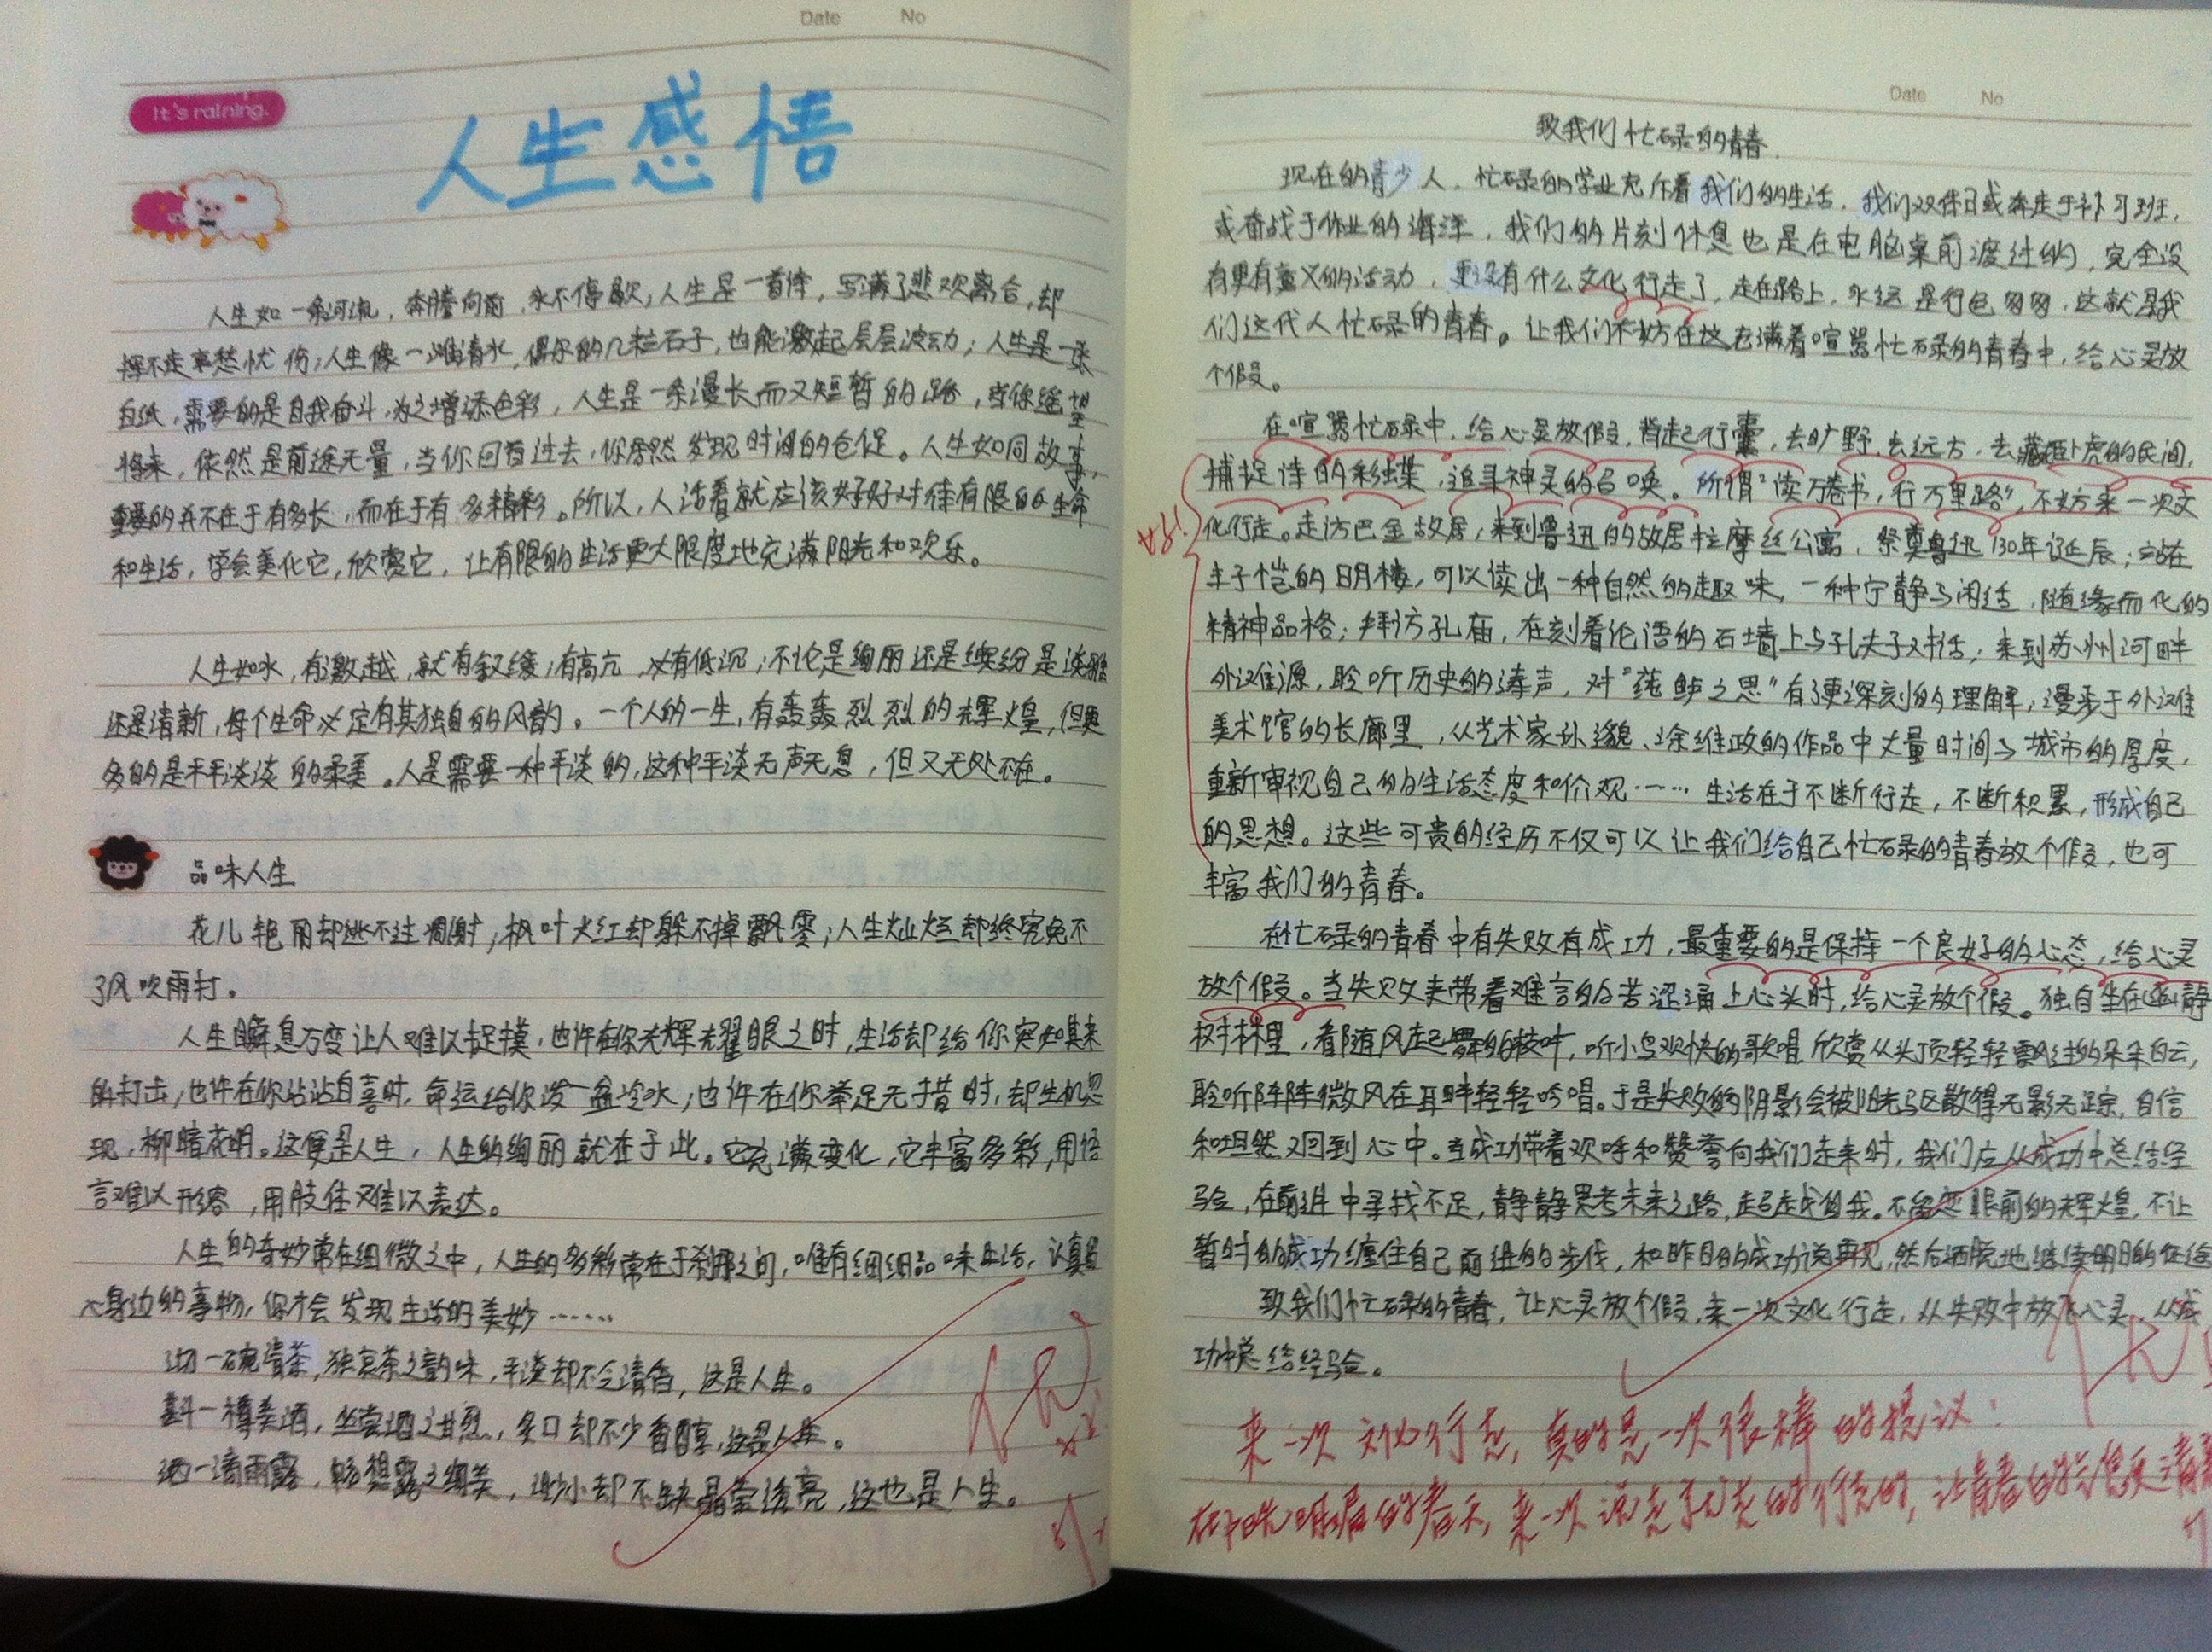 Date No
It's raining.
人生感悟
人生如一条河流，奔腾向前，永不停歇；人生是一首诗，写满了悲欢离合，却
挥不走哀愁忧伤；人生像一滩清水，偶尔的几粒石子，也能激起层层波动；人生是一张
白纸，需要的是自我奋斗，为之增添色彩，人生是一条漫长而又短暂的路，当你遥望
将来，依然是前途无量，当你回首过去，你居然发现时间的仓促。人生如同故事，
重要的并不在于有多长，而在于有多精彩。所以，人活着就应该好好对待有限的生命
和生活，学会美化它，欣赏它，让有限的生活更大限度地充满阳光和欢乐。
人生如水，有激越，就有舒缓；有高亢，必有低沉；不论是绚丽还是缤纷是淡雅
还是清新，每个生命必定有其独自的风韵。一个人的一生，有轰轰烈烈的辉煌，但更
多的是平平淡淡的柔美。人是需要一种平淡的，这种平淡无声无息，但又无处不在。
品味人生
花儿艳丽却逃不过凋谢；枫叶火红却躲不掉飘零；人生灿烂却终究免不
了风吹雨打。
人生瞬息万变让人难以捉摸，也许在你光辉耀眼之时，生活却给你突如其来
的打击；也许在你沾沾自喜时，命运给你泼一盆冷水；也许在你举足无措时，却生机忽
现，柳暗花明。这便是人生，人生的绚丽就在于此。它充满变化，它丰富多彩，用语
言难以形容，用肢体难以表达。
人生的奇妙常在细微之中，人生的多彩常在于刹那之间，唯有细细品味生活，认真留
心身边的事物，你才会发现生活的美妙……
沏一碗清茶，独哀茶之韵味，平淡却不乏清香，这是人生。
斟一樽美酒，坐尝酒之甘烈，多口却不少香醇，这是人生。
洒一滴雨露，畅想露之细美，渺小却不缺晶莹透亮，这也是人生。
Date No
致我们忙碌的青春
现在的青少人，忙碌的学业充斥着我们的生活，我们双休日或奔走于补习班，
或奋战于作业的海洋，我们的片刻休息也是在电脑桌前渡过的，完全没
有更有意义的活动，更没有什么文化行走了，走在路上，永远是行色匆匆，这就是我
们这代人忙碌的青春。让我们不妨在这充满着喧嚣忙碌的青春中，给心灵放
个假。
在喧嚣忙碌中，给心灵放假，背起行囊，去旷野，去远方，去藏龙卧虎的民间，
捕捉诗的彩蝶，追寻神灵的召唤。所谓“读万卷书，行万里路”，不妨来一次文
化行走。走访巴金故居，来到鲁迅的故居拉摩丝公寓，祭奠鲁迅130年诞辰；站在
丰子恺的日月楼，可以读出一种自然的趣味，一种宁静与闲适，随缘而化的
精神品格；拜访孔庙，在刻着论语的石墙上与孔夫子对话；来到苏州河畔
外滩源，聆听历史的涛声，对“莼鲈之思”有了更深刻的理解；漫步于外滩
美术馆的长廊里，从艺术家孙逊貌、徐维政的作品中丈量时间与城市的厚度，
重新审视自己的生活态度和价观……生活在于不断行走，不断积累，形成自己
的思想。这些可贵的经历不仅可以让我们给自己忙碌的青春放个假，也可
丰富我们的青春。
在忙碌的青春中有失败有成功，最重要的是保持一个良好的心态，给心灵
放个假。当失败夹带着难言的苦涩涌上心头时，给心灵放个假。独自坐在幽静
树林里，看随风起舞的枝叶，听小鸟欢快的歌唱，欣赏从头顶轻轻飘过的朵朵白云，
聆听阵阵微风在耳畔轻轻吟唱。于是失败的阴影会被阳光驱散得无影无踪，自信
和坦然又回到心中。当成功带着欢呼和赞誉向我们走来时，我们应从成功中总结经
验，在前进中寻找不足，静静思考未来之路，起超越自我。不留恋眼前的辉煌，不让
暂时的成功缠住自己前进的步伐，和昨日的成功说再见，然后洒脱地继续明日的征途
致我们忙碌的青春，让心灵放个假，来一次文化行走，从失败中放飞心灵，从成
功中总结经验。
好！
来一次文化行走，真的是一次很棒的提议！
在阳光明媚的春天，来一次说走就走的行走的，让青春的